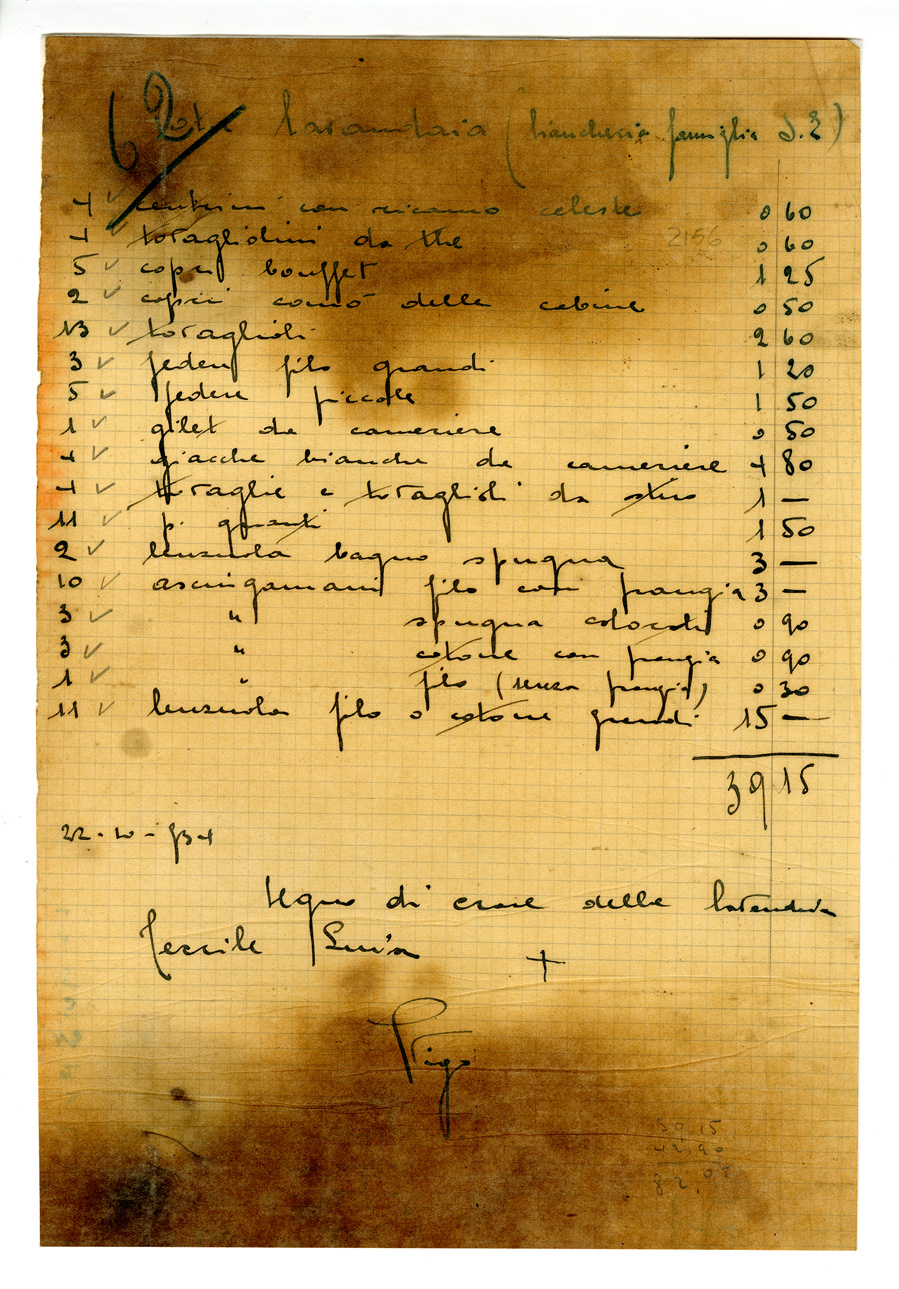 62
Nota lavandaia (biancheria famiglia S. E.)
4 centrini con ricamo celeste 0 60
4 tovagliolini da the 0 60
2156
5 copri bouffet 1 25
2 copri comò delle cabine 0 50
13 tovaglioli 2 60
3 federe filo grandi 1 20
5 federe piccole 1 50
1 gilet da cameriere 0 50
4 giacche bianche da cameriere 4 80
4 tovaglie e tovaglioli da stiro 1 —
11 p. guanti 1 50
2 lenzuola bagno spugna 3 —
10 asciugamani filo con frangia 3 —
3 " spugna colorati 0 90
3 " cotone con frangia 0 90
1 " filo (senza frangia) 0 30
11 lenzuola filo o cotone grandi 15 —
39 15
22-10-934
segno di croce della lavandaia
Luisa +
Vigo
39,15
42,90
82,05